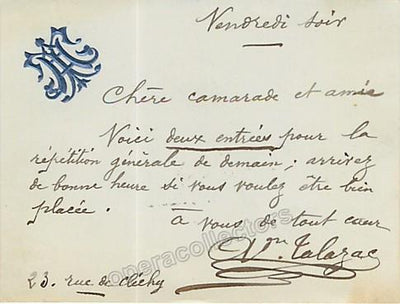 Vendredi soir
Chère camarade et amie
Voici deux entrées pour la
répétition générale de demain ; arrivez
de bonne heure si vous voulez être bien
placée.
à vous de tout cœur
Vm Talazac
23. rue de clichy
operacollectors